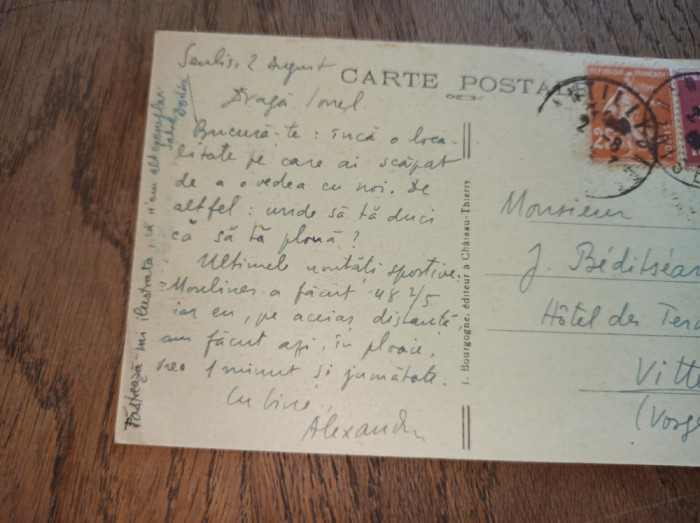 Senlis, 2 August
CARTE POSTALE
Dragă Ionel.
Bucură-te: încă o loca-
litate pe care ai scăpat
de a o vedea cu noi. De
altfel: unde să tă duci
că să tă plouă?
Ultimele noutăti sportive:
Moulines a făcut 48 2/5
iar eu, pe aceias distantă,
am făcut azi, în ploaie,
vreo 1 minut si jumătate.
Cu bine,
Alexandru
Păstrează-mi ilustrata, că n'am alt exemplar
J. Bourgogne, éditeur à Château-Thierry
REPUBLIQUE FRANÇAISE
25
Monsieur
J. Béditséan
Hôtel des
Vitte
(Vosg